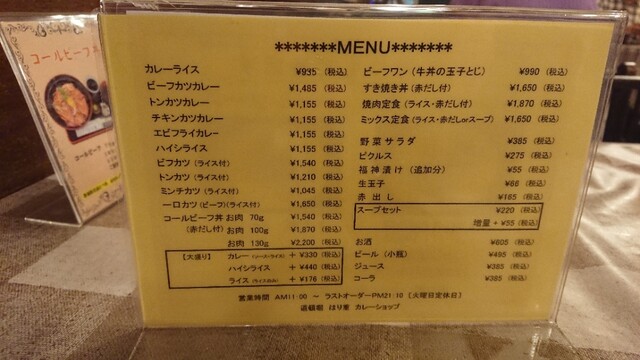 *******MENU*******
カレーライス ¥935 (税込)
ビーフカツカレー ¥1,485 (税込)
トンカツカレー ¥1,155 (税込)
チキンカツカレー ¥1,155 (税込)
エビフライカレー ¥1,155 (税込)
ハイシライス ¥1,155 (税込)
ビフカツ (ライス付) ¥1,540 (税込)
トンカツ (ライス付) ¥1,210 (税込)
ミンチカツ (ライス付) ¥1,045 (税込)
一口カツ (ビーフ)(ライス付) ¥1,650 (税込)
コールビーフ丼 お肉 70g ¥1,540 (税込)
(赤だし付) お肉 100g ¥1,870 (税込)
お肉 130g ¥2,200 (税込)
【大盛り】 カレー + ¥330 (税込)
ハイシライス + ¥440 (税込)
ライス + ¥176 (税込)
ビーフワン (牛丼の玉子とじ) ¥990 (税込)
すき焼き丼 (赤だし付) ¥1,650 (税込)
焼肉定食 (ライス・赤だし付) ¥1,870 (税込)
ミックス定食 (ライス・赤だしorスープ) ¥1,650 (税込)
野菜サラダ ¥385 (税込)
ピクルス ¥275 (税込)
福神漬け (追加分) ¥55 (税込)
生玉子 ¥66 (税込)
赤出し ¥165 (税込)
スープセット ¥220 (税込)
増量 + ¥55 (税込)
お酒 ¥605 (税込)
ビール (小瓶) ¥495 (税込)
ジュース ¥385 (税込)
コーラ ¥385 (税込)
営業時間 AM11:00 ～ ラストオーダーPM21:10 [火曜日定休日]
道頓堀 はり重 カレーショップ
コールビーフ丼
コールビーフ